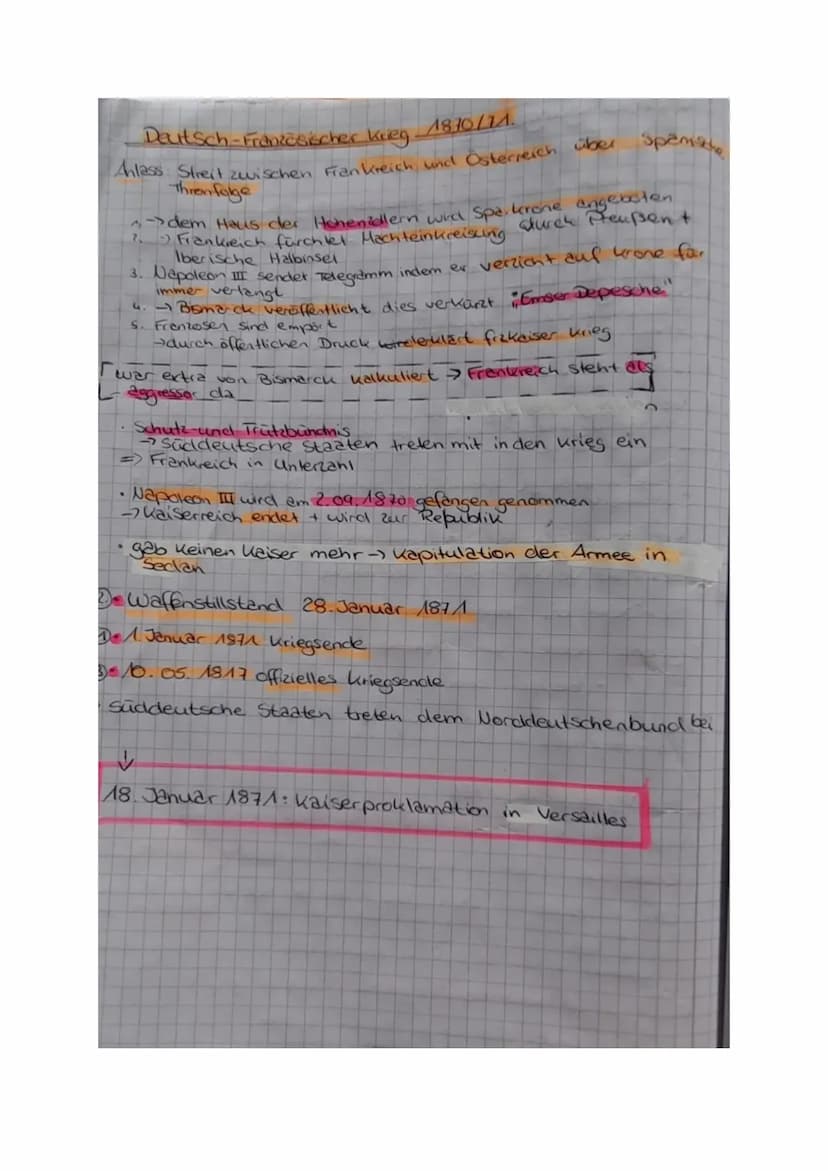 Deutsch-Französischer Krieg 1870/71.
Anlass: Streit zwischen Frankreich und Österreich über Spanische
Thronfolge
1. → dem Haus der Hohenzollern wird Spa. krone angeboten
2. → Frankreich fürchtet Machteinkreisung durch Preußen +
Iberische Halbinsel
3. Napoleon III sendet Telegramm indem er verzicht auf krone für
immer verlangt
4. → Bismarck veröffentlicht dies verkürzt "Emser Depesche"
5. Franzosen sind empört
→ durch öffentlichen Druck erklärt frz kaiser krieg
war extra von Bismarck kalkuliert → Frankreich steht als
aggressor da
· Schutz-und Trutzbündnis
→ Süddeutsche Staaten treten mit in den krieg ein
=> Frankreich in Unterzahl
· Napoleon III wird am 2.09.1870 gefangen genommen
→ Kaiserreich endet + wird zur Republik
· gab keinen Kaiser mehr → Kapitulation der Armee in
Sedan
2) • Waffenstillstand 28. Januar 1871
1) • 1. Januar 1871 Kriegsende
3) • 10. 05. 1817 offizielles Kriegsende
· Süddeutsche Staaten treten dem Norddeutschenbund bei
↓
18. Januar 1871: Kaiserproklamation in Versailles